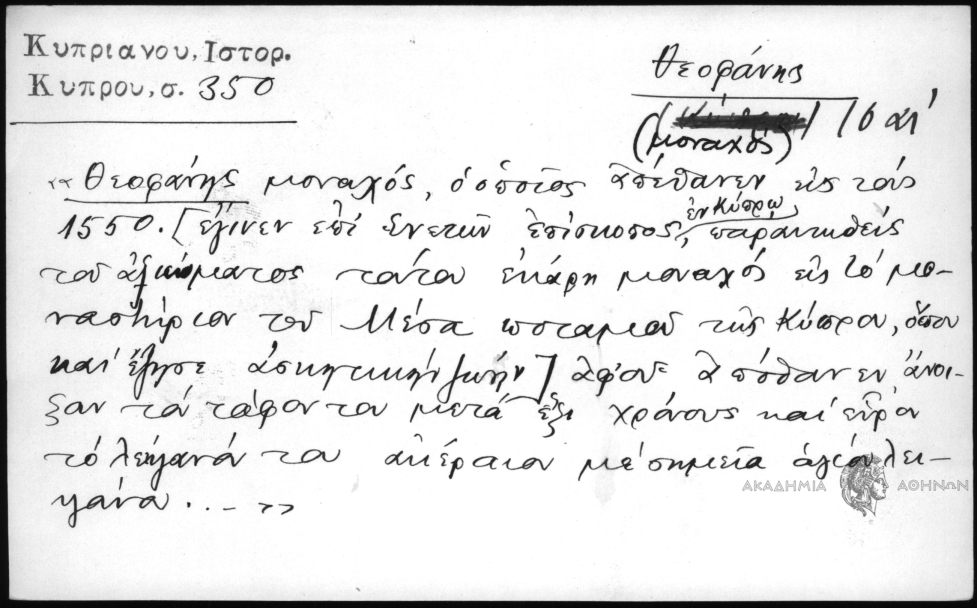 Κυπριανου, Ιστορ.
Κυπρου, σ. 350
Θεοφάνης
(μοναχός) 16 αι'
«Θεοφάνης μοναχός, ὁ ὁποῖος ἀπέθανεν εἰς τούς
1550. [ἔγινεν ἐπί Ἑνετῶν ἐπίσκοπος, ἐν Κύπρῳ, παραιτηθείς
τοῦ ἀξιώματος τούτου ἐκάρη μοναχός εἰς τό μο-
ναστήριον τοῦ Μέσα ποταμοῦ τῆς Κύπρου, ὅπου
καί ἔζησε ἀσκητικήν ζωήν] ἀφοῦ ἀπόθανεν, ἄνοι-
ξαν τό τάφον του μετά ἕξι χρόνους καί εὗρον
τό λείψανόν του ἀκέραιον μέ σημεῖα ἁγίου λει-
ψάνου ... »
ΑΚΑΔΗΜΙΑ ΑΘΗΝΩΝ